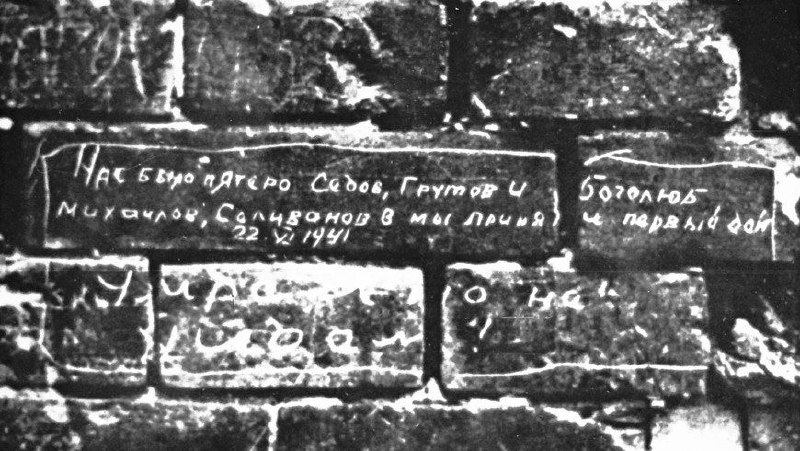 Нас было пятеро Седов, Грутов И Боголюб
Михаилов, Селиванов В мы приня и первый бой
22 VI 1941
о на